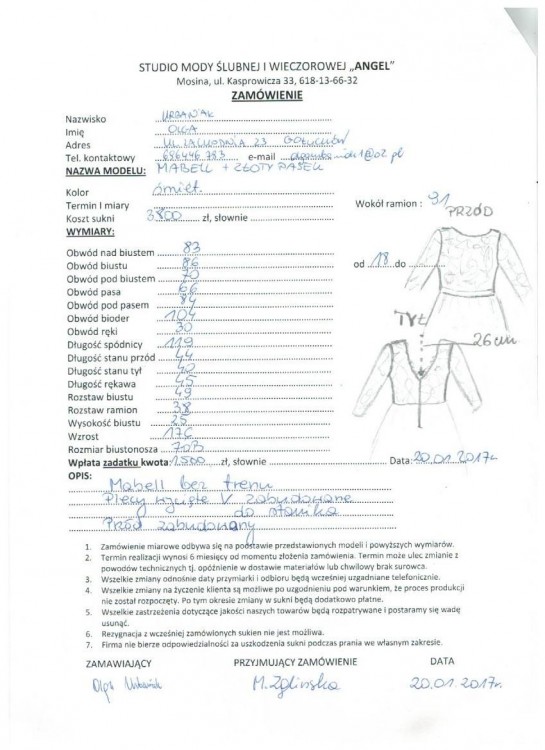 STUDIO MODY ŚLUBNEJ I WIECZOROWEJ „ANGEL"
Mosina, ul. Kasprowicza 33, 618-13-66-32
ZAMÓWIENIE
Nazwisko URBANIAK
Imię OLGA
Adres UL. ZACHODNIA 23 GOŁUCHÓW
Tel. kontaktowy e-mail
NAZWA MODELU: MABELL + ZŁOTY PASEK
Kolor śmiet.
Termin I miary
Koszt sukni 3800 zł, słownie
Wokół ramion : 31
PRZÓD
WYMIARY:
Obwód nad biustem 83
Obwód biustu 86
Obwód pod biustem 70
Obwód pasa 66
Obwód pod pasem 84
Obwód bioder 104
Obwód ręki 30
Długość spódnicy 119
Długość stanu przód 44
Długość stanu tył 40
Długość rękawa 45
Rozstaw biustu 49
Rozstaw ramion 38
Wysokość biustu 25
Wzrost 176
Rozmiar biustonosza 70B
od 18 do
TYŁ
26 cm
Wpłata zadatku kwota: 1.500 zł, słownie Data: 20.01.2017r
OPIS: Mabell bez trenu
Plecy wcięte V zabudowane
do stanika
Przód zabudowany
1. Zamówienie miarowe odbywa się na podstawie przedstawionych modeli i powyższych wymiarów.
2. Termin realizacji wynosi 6 miesięcy od momentu złożenia zamówienia. Termin może ulec zmianie z
powodów technicznych tj. opóźnienie w dostawie materiałów lub chwilowy brak surowca.
3. Wszelkie zmiany odnośnie daty przymiarki i odbioru będą wcześniej uzgadniane telefonicznie.
4. Wszelkie zmiany na życzenie klienta są możliwe po uzgodnieniu pod warunkiem, że proces produkcji
nie został rozpoczęty. Po tym okresie zmiany w sukni będą dodatkowo płatne.
5. Wszelkie zastrzeżenia dotyczące jakości naszych towarów będą rozpatrywane i postaramy się wadę
usunąć.
6. Rezygnacja z wcześniej zamówionych sukien nie jest możliwa.
7. Firma nie bierze odpowiedzialności za uszkodzenia sukni podczas prania we własnym zakresie.
ZAMAWIAJĄCY PRZYJMUJĄCY ZAMÓWIENIE DATA
Olga Urbaniak M. Zglińska 20.01.2017r.